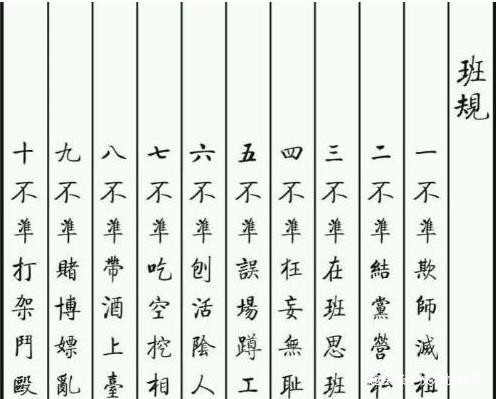 班規
一不準欺師滅祖
二不準結黨營私
三不準在班思班
四不準狂妄無恥
五不準誤場蹲工
六不準刨活陰人
七不準吃空挖相
八不準帶酒上臺
九不準賭博嫖亂
十不準打架鬥毆